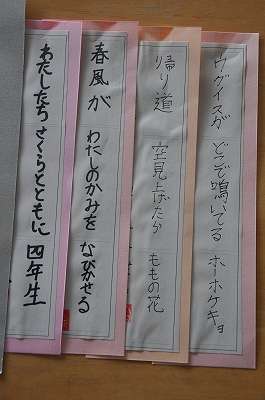 ウグイスが どこで鳴いてる ホーホケキョ
帰り道 空見上げたら ももの花
春風が わたしのかみを なびかせる
わたしたち さくらとともに 四年生